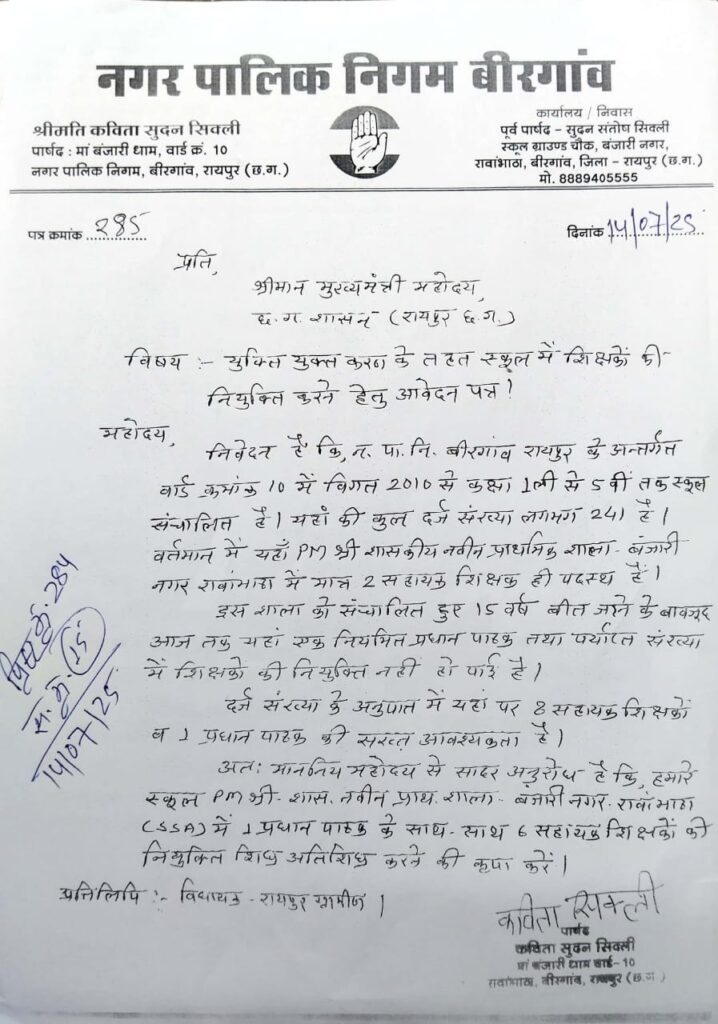 नगर पालिक निगम बीरगांव
श्रीमति कविता सुदन सिक्ली
पार्षद : मां बंजारी धाम, वार्ड कं. 10
नगर पालिक निगम, बीरगांव, रायपुर (छ.ग.)
कार्यालय / निवास
पूर्व पार्षद - सुदन संतोष सिक्ली
स्कूल ग्राउण्ड चौक, बंजारी नगर,
रावांभाठा, बीरगांव, जिला - रायपुर (छ.ग.)
मो. 8889405555
पत्र क्रमांक 285
दिनांक 14/07/25
प्रति,
श्रीमान मुख्यमंत्री महोदय,
छ.ग. शासन (रायपुर छ.ग.)
विषय :- युक्ति युक्त करण के तहत स्कूल में शिक्षकों की
नियुक्ति करने हेतु आवेदन पत्र!
महोदय,
निवेदन है कि, न. पा. नि. बीरगांव रायपुर के अन्तर्गत
वार्ड क्रमांक 10 में विगत 2010 से कक्षा 1ली से 5वीं तक स्कूल
संचालित है। यहां की कुल दर्ज संख्या लगभग 241 है।
वर्तमान में यहाँ PM श्री शासकीय नवीन प्राथमिक शाला - बंजारी
नगर रावांभाठा में मात्र 2 सहायक शिक्षक ही पदस्थ हैं।
इस शाला को संचालित हुए 15 वर्ष बीत जाने के बावजूद
आज तक यहां एक नियमित प्रधान पाठक तथा पर्याप्त संख्या
में शिक्षको की नियुक्ति नहीं हो पाई है।
दर्ज संख्या के अनुपात में यहां पर 8 सहायक शिक्षकों
व 1 प्रधान पाठक की सख्त आवश्यकता है।
अतः माननिय महोदय से सादर अनुरोध है कि, हमारे
स्कूल PM श्री - शास. नवीन प्राथ. शाला - बंजारी नगर - रावांभाठा
(SSA) में 1 प्रधान पाठक के साथ - साथ 6 सहायक शिक्षकों की
नियुक्ति शिघ्र अतिशिघ्र करने की कृपा करें।
प्रतिलिपि :- विधायक - रायपुर ग्रामीण।
284
15
14/07/25
कविता सिक्ली
पार्षद
कविता सुदन सिक्ली
मां बंजारी धाम वार्ड-10
रावांभाठा, बीरगांव, रायपुर (छ.ग.)